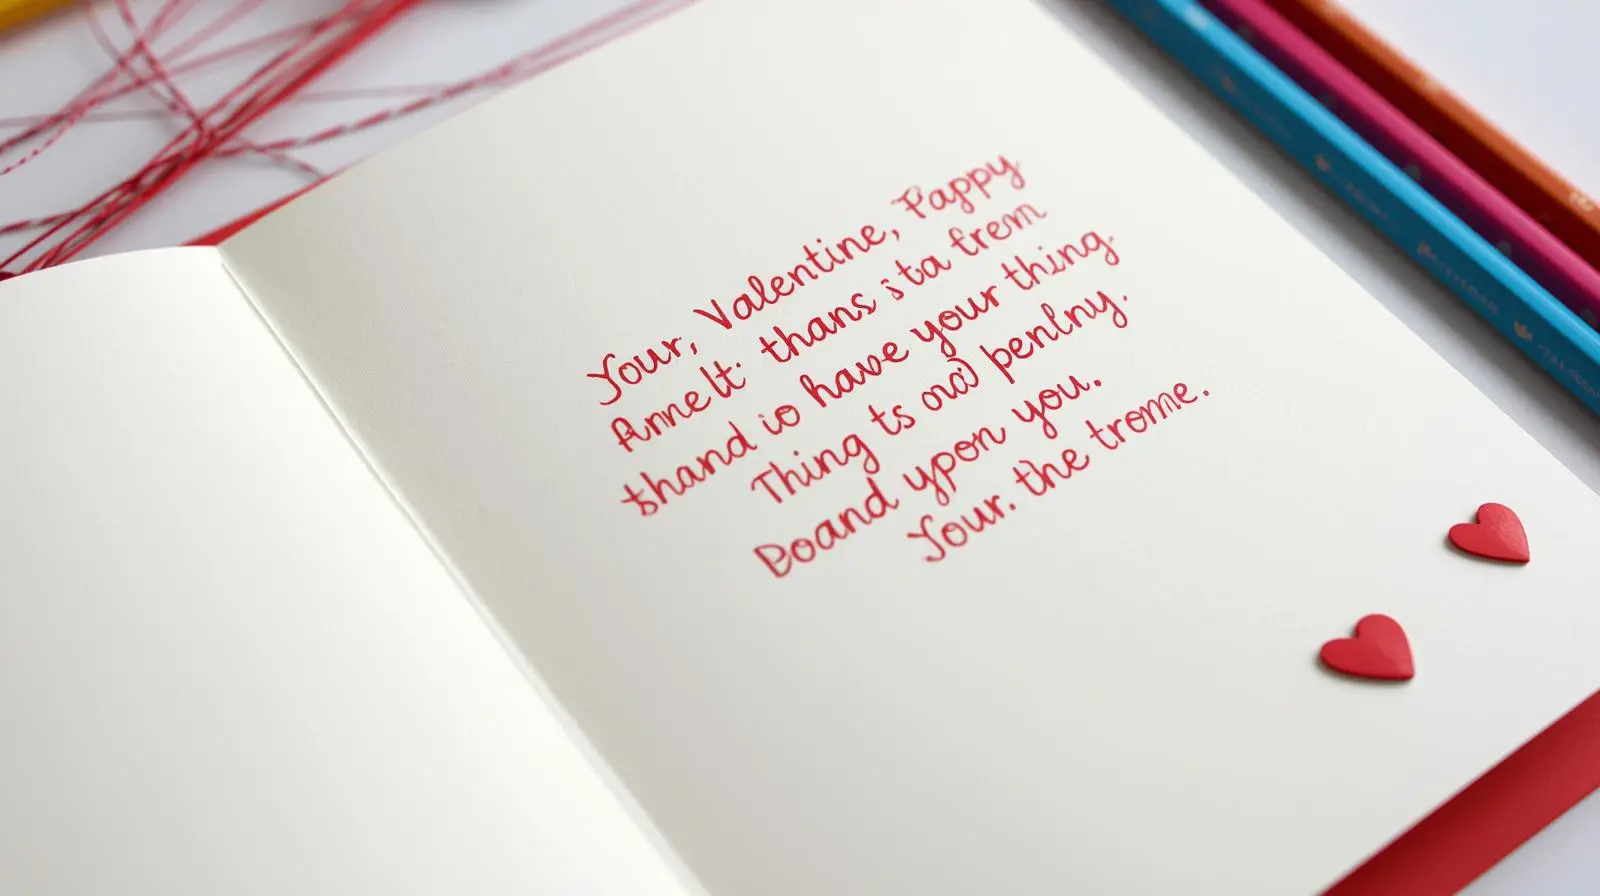 Your, Valentine, Pappy
Annelt: thans ista frem
thand io have your thing.
Thing ts owd penlny.
Doand ypon you.
Your. the trome.